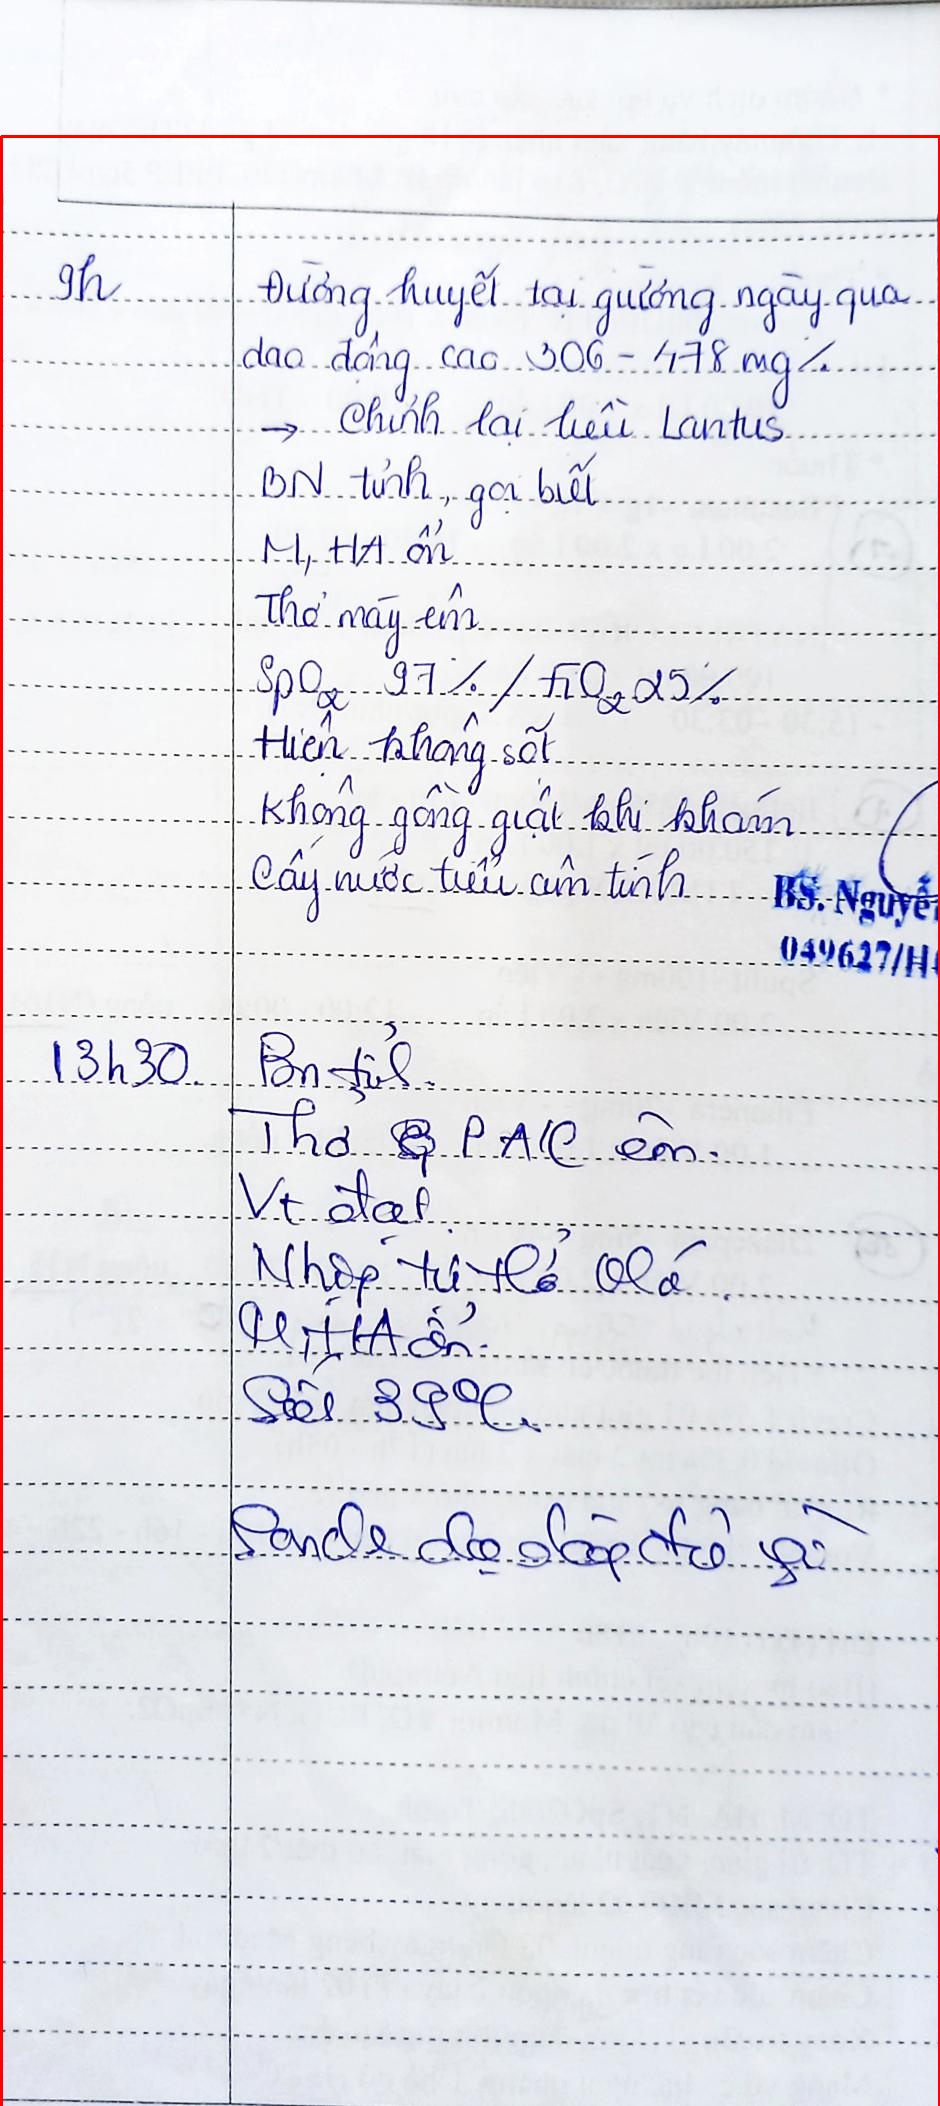 9h
Đường huyết tại giường ngày qua
dao động cao 306 - 478 mg%
→ Chỉnh lại liều Lantus
BN tỉnh, gọi biết
M, HA ổn
Thở máy êm
SpO2 97% / FiO2 25%
Hiện không sốt
Không gồng giật khi khám
Cấy nước tiểu âm tính
BS. Nguyễ
049627/H
13h30
Bn tỉnh
Thở P A/C êm.
Vt đạt
M, HA ổn.
Sốt 39°C.